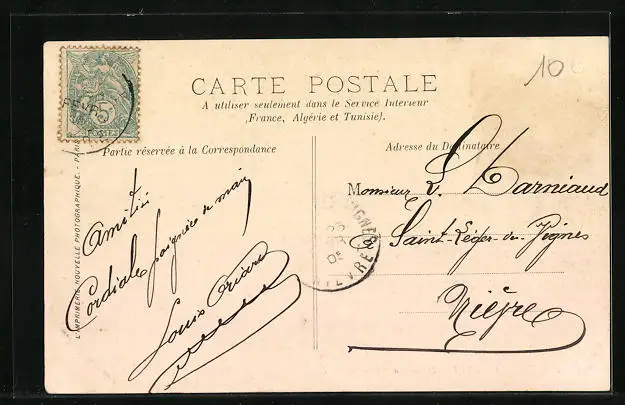 10
CARTE POSTALE
A utiliser seulement dans le Service Interieur
(France, Algérie et Tunisie).
Partie réservée à la Correspondance
Adresse du Destinataire
L'IMPRIMERIE NOUVELLE PHOTOGRAPHIQUE - PARIS
POSTES
Amitié
Cordiale poignée de main
Louis
Monsieur L. Larniaud
Saint-Léger-des-Vignes
Nièvre
NIEVRE